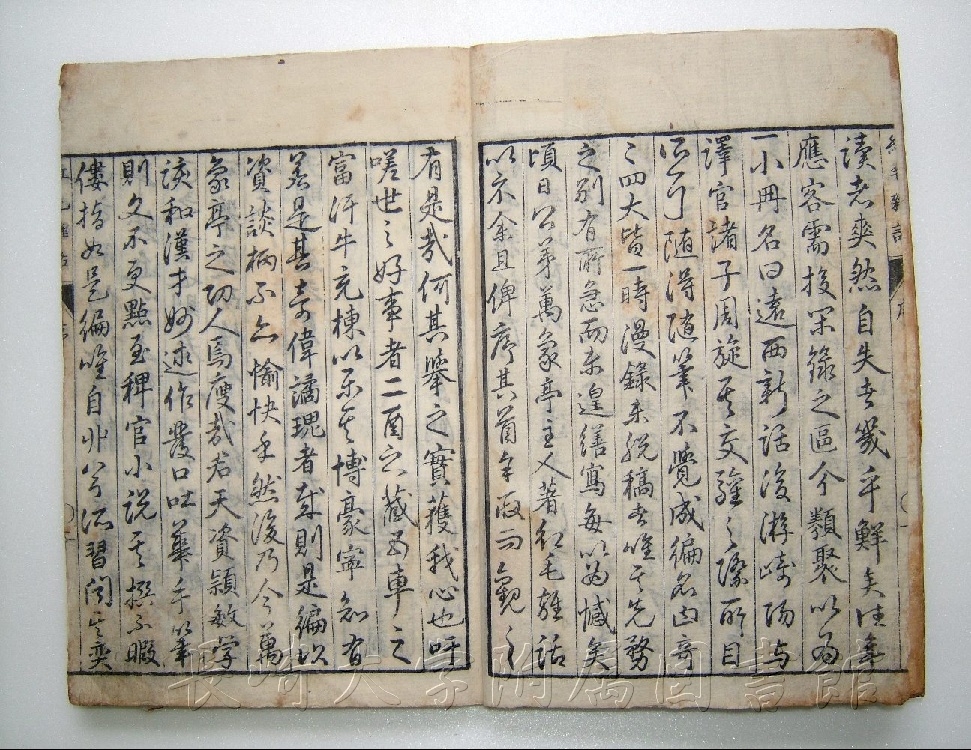 讀者爽然自失者幾乎鮮矣往年
應客需投采錄之區分類聚以為
一小冊名曰遠西新話後游崎陽与
譯官諸子周旋其交驩之際所目
随得随筆不覺成編名曰奇
四大皆一時漫錄未脱稿者唯其先務
之別有所急而未遑繕寫每以為憾矣
頃日公弟萬象亭主人著紅毛雜話
以示余且俾序其首余取而觀之
有是哉何其舉之實獲我心也吁
嗟世之好事者二酉之藏五車之
富汗牛充棟以示其博豪寧知有
若是其奇偉譎瑰者哉則是編以
資談柄不亦愉快乎然後乃今萬
象亭之功人焉廋哉君天資穎敏学
該和漢才妙述作發口吐華手筆
則文不更點至稗官小説其撰不暇
僂指如是編唯自非公兮所習聞其奕
長崎大学附属図書館